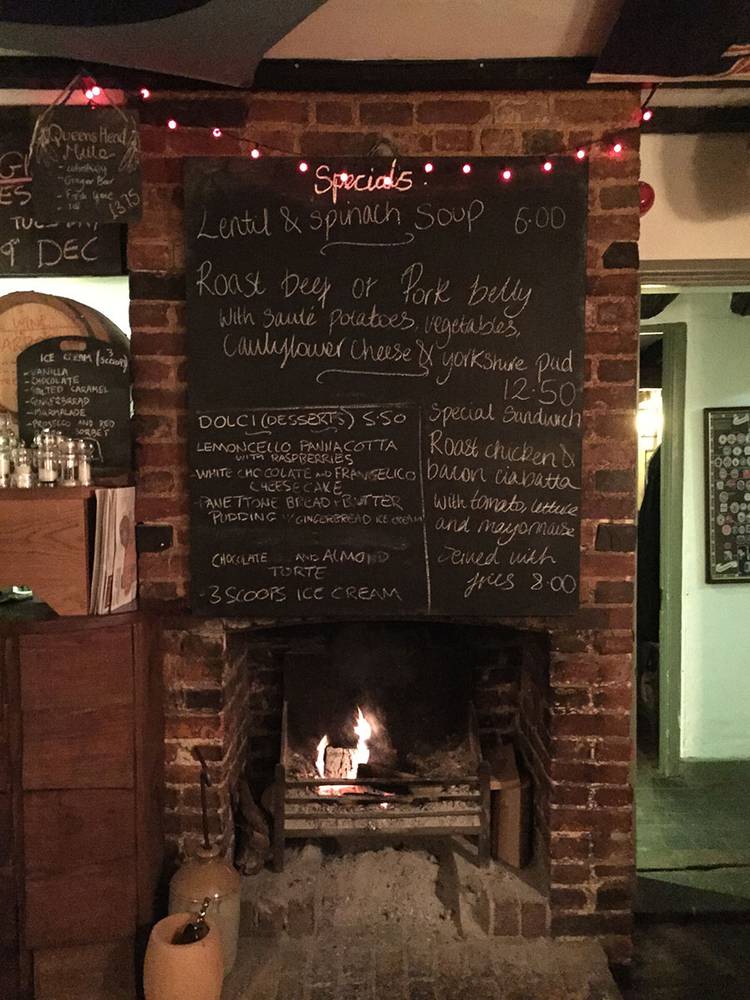 Queens Head
Mule
- Whiskey
- Ginger Beer
£3.75
ES
TUESDAY
9th DEC
WINE
ICE CREAM (3 SCOOPS)
- VANILLA
- CHOCOLATE
- SALTED CARAMEL
- GINGERBREAD
- MARMALADE
- PROSECCO AND RED
SORBET
Specials
Lentil & Spinach Soup 6.00
Roast beef or Pork belly
with sauté potatoes, vegetables,
Cauliflower cheese & yorkshire pud
12.50
DOLCI (DESSERTS) 5.50
LEMONCELLO PANNACOTTA
WITH RASPBERRIES
- WHITE CHOCOLATE AND FRANGELICO
CHEESECAKE
- PANETTONE BREAD + BUTTER
PUDDING w GINGERBREAD ICE CREAM
CHOCOLATE AND ALMOND
TORTE
- 3 SCOOPS ICE CREAM
Special Sandwich
Roast chicken &
bacon ciabatta
with tomato, lettuce
and mayonnaise
served with
fries 8.00